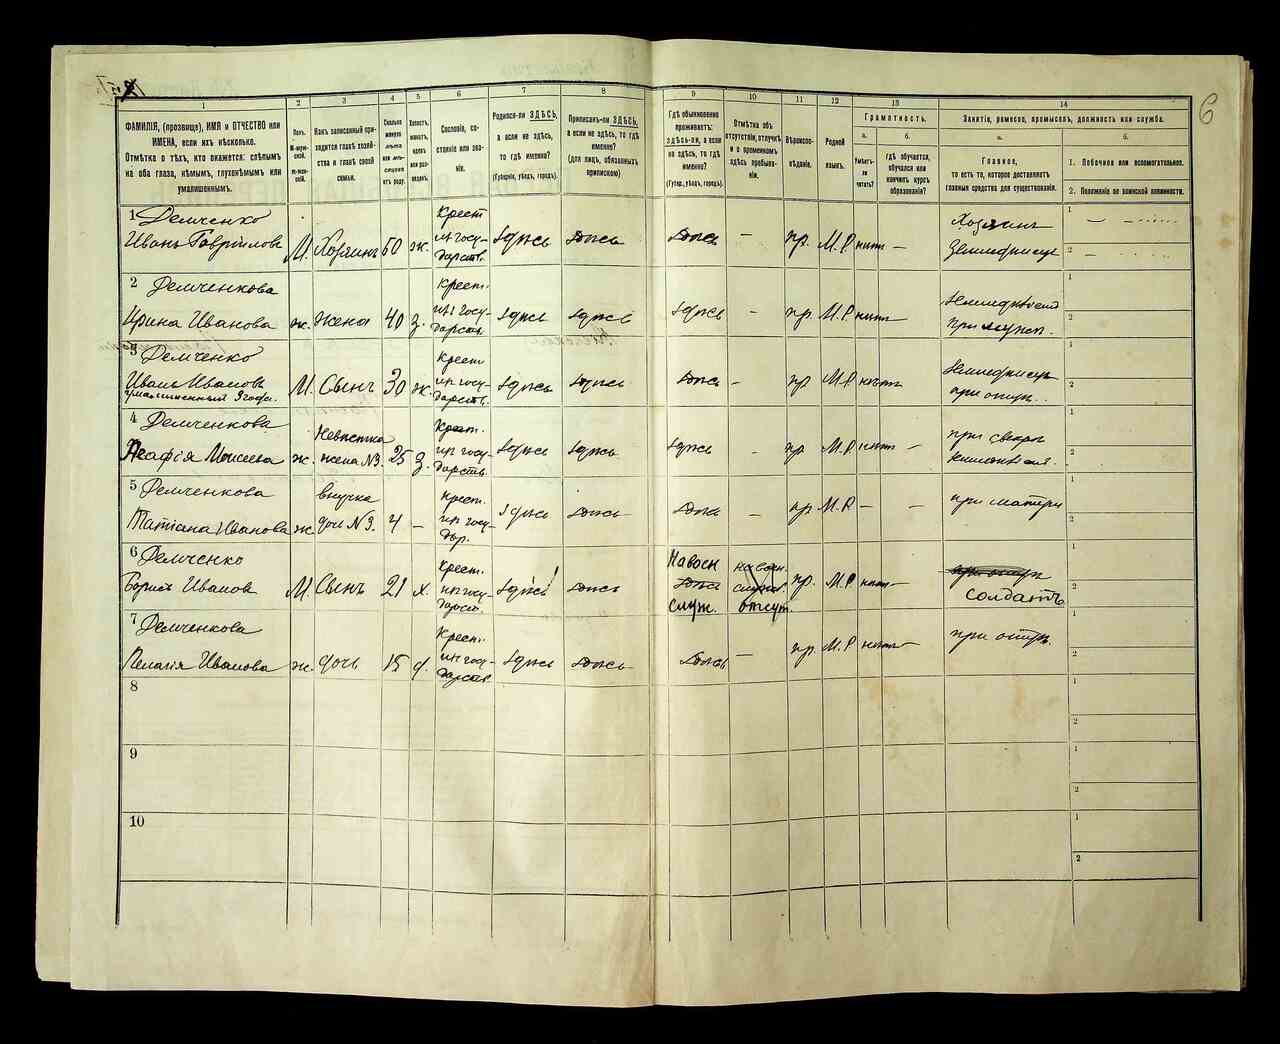 6
1
2
3
4
5
6
7
8
9
10
11
12
13
14
ФАМИЛІЯ, (прозвище), ИМЯ и ОТЧЕСТВО или
ИМЕНА, если ихъ нѣсколько.
Отмѣтка о тѣхъ, кто окажется: слѣпымъ
на оба глаза, нѣмымъ, глухонѣмымъ или
умалишеннымъ.
Полъ.
М-муж-
ской.
Ж-жен-
скій.
Какъ записанный при-
ходится главѣ хозяй-
ства и главѣ своей
семьи.
Сколько
минуло
лѣтъ
или мѣ-
сяцевъ
отъ роду.
Холостъ,
женатъ,
вдовъ
или раз-
веденъ.
Сословіе, со-
стояніе или зва-
ніе.
Родился-ли ЗДѢСЬ,
а если не здѣсь,
то гдѣ именно?
(Губернія, уѣздъ, городъ).
Приписанъ-ли ЗДѢСЬ,
а если не здѣсь, то гдѣ
именно?
(Для лицъ, обязанныхъ
припискою)
Гдѣ обыкновенно
проживаетъ:
ЗДѢСЬ-ли, а если
не здѣсь, то гдѣ
именно?
(Губер., уѣздъ, городъ).
Отмѣтка объ
отсутствіи, отлучкѣ
и о временномъ
здѣсь пребыва-
ніи.
Вѣроиспо-
вѣданіе.
Родной
языкъ.
Грамотность.
а.
Умѣетъ-
ли
читать?
б.
гдѣ обучается,
обучался или
кончилъ курсъ
образованія?
Занятіе, ремесло, промыселъ, должность или служба.
а.
Главное,
то есть то, которое доставляетъ
главныя средства для существованія.
б.
1. Побочное или вспомогательное.
2. Положеніе по воинской повинности.
1 Демченко
Иванъ Гавриловъ М. Хозяинъ 50 ж.
Крест
изъ госу-
дарств.
здѣсь здѣсь здѣсь — пр. М.Р нѣтъ —
Хозяинъ
Земледѣлецъ
1 —
2 —
2 Демченкова
Ирина Иванова ж. жена 40 з.
Крест.
изъ госу-
дарств
здѣсь здѣсь здѣсь — пр М.Р нѣтъ
1
2
3 Демченко
Иванъ Ивановъ М. Сынъ 30 ж.
умалишенный
Крест
изъ госу-
дарств.
здѣсь здѣсь здѣсь — пр М.Р нѣтъ
Земледѣлецъ
при отцѣ.
1
2
4 Демченкова
Агафія Моисеева ж.
Невѣстка
жена №3. 25 з.
Крест.
изъ госу-
дарств.
здѣсь здѣсь здѣсь — пр М.Р нѣтъ —
1
2
5 Демченкова
Татіана Иванова ж.
внучка
дочь №3. 4 —
Крест.
изъ госу-
дар.
здѣсь здѣсь здѣсь — пр М.Р — —
при матери
1
2
6 Демченко
Борисъ Ивановъ М. Сынъ 21 х.
Крест.
изъ госу-
дарст.
здѣсь здѣсь
На воен
здѣсь
служ.
на воен.
служб.
отсут.
пр. М.Р нѣтъ —
при отцѣ
солдатъ
1
2
7 Демченкова
Пелагія Иванова ж. дочь 15 д.
Крест.
изъ госу-
дарств
здѣсь здѣсь здѣсь — пр. М.Р нѣтъ —
при отцѣ.
1
2
8
1
2
9
1
2
10
1
2